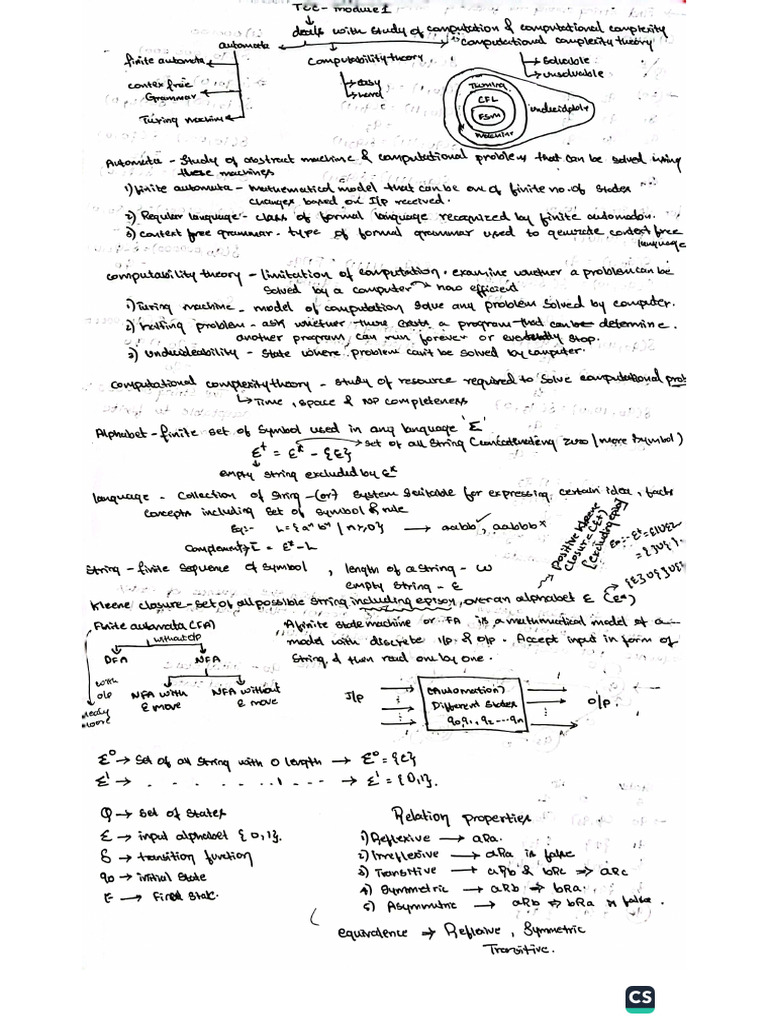 TCC - module 1
deals with study of computation & computational complexity
automata
computability theory
computational complexity theory
finite automata
contex free
Grammar
Turing machine
easy
hard
solvable
unsolvable
Turing
CFL
FSM
undecidable
Automata - Study of abstract machine & computational problems that can be solved using
these machines
1) finite automata - mathematical model that can be one of finite no. of states
changes based on I/p received.
2) Regular language - class of formal language recognized by finite automaton.
3) context free grammar - type of formal grammar used to generate context free
language
computability theory - limitation of computation. examine whether a problem can be
solved by a computer → how efficient
1) Turing machine - model of computation solve any problem solved by computer.
2) halting problem - ask whether there exists a program that can be determine.
another program, can run forever or eventually stop.
3) undecideability - state where problem can't be solved by computer.
computational complexity theory - study of resource required to solve computational prob
↳ Time, space & NP completeness
Alphabet - finite set of symbol used in any language 'Σ'
Σ⁺ = Σ* - {ε}
set of all string (concatenating zero / more symbol)
empty string excluded by Σ*
language - collection of string - (or) system suitable for expressing certain idea, facts
concepts including set of symbol & rule
Eg:- L = {aⁿ bⁿ | n>,0} → aabb ✓, aabbb ×
Complement, L̅ = Σ* - L
Positive Kleene
closure (Σ+)
[excluding
String - finite sequence of symbol, length of a string - w
empty string - ε
Kleene closure - set of all possible string including epison, over an alphabet Σ (Σ*)
Finite automata (FA)
without o/p
DFA
NFA
with
o/p
Mealy
moore
NFA with
ε move
NFA without
ε move
A finite state machine or FA is a mathematical model of a
model with discrete i/p & o/p. Accept input in form of
string & then read one by one.
I/p
(Automation)
Different states
q0, q1, q2 ---- qn
o/p.
Σ⁰ → Set of all string with 0 length → Σ⁰ = {ε}
Σ¹ → . . . . . . . 1 . - - - → Σ¹ = {0,1}.
Q → set of states
Σ → input alphabet {0,1}.
δ → transition function
q0 → initial state
F → Final state.
Relation properties
1) Reflexive → aRa.
2) Irreflexive → aRa is false
3) Transitive → aRb & bRc ⇒ aRc
4) Symmetric → aRb ⇒ bRa.
5) Asymmutric → aRb ⇔ bRa is false.
equivalence ⇒ Reflexive, Symmetric
Transitive.
CS